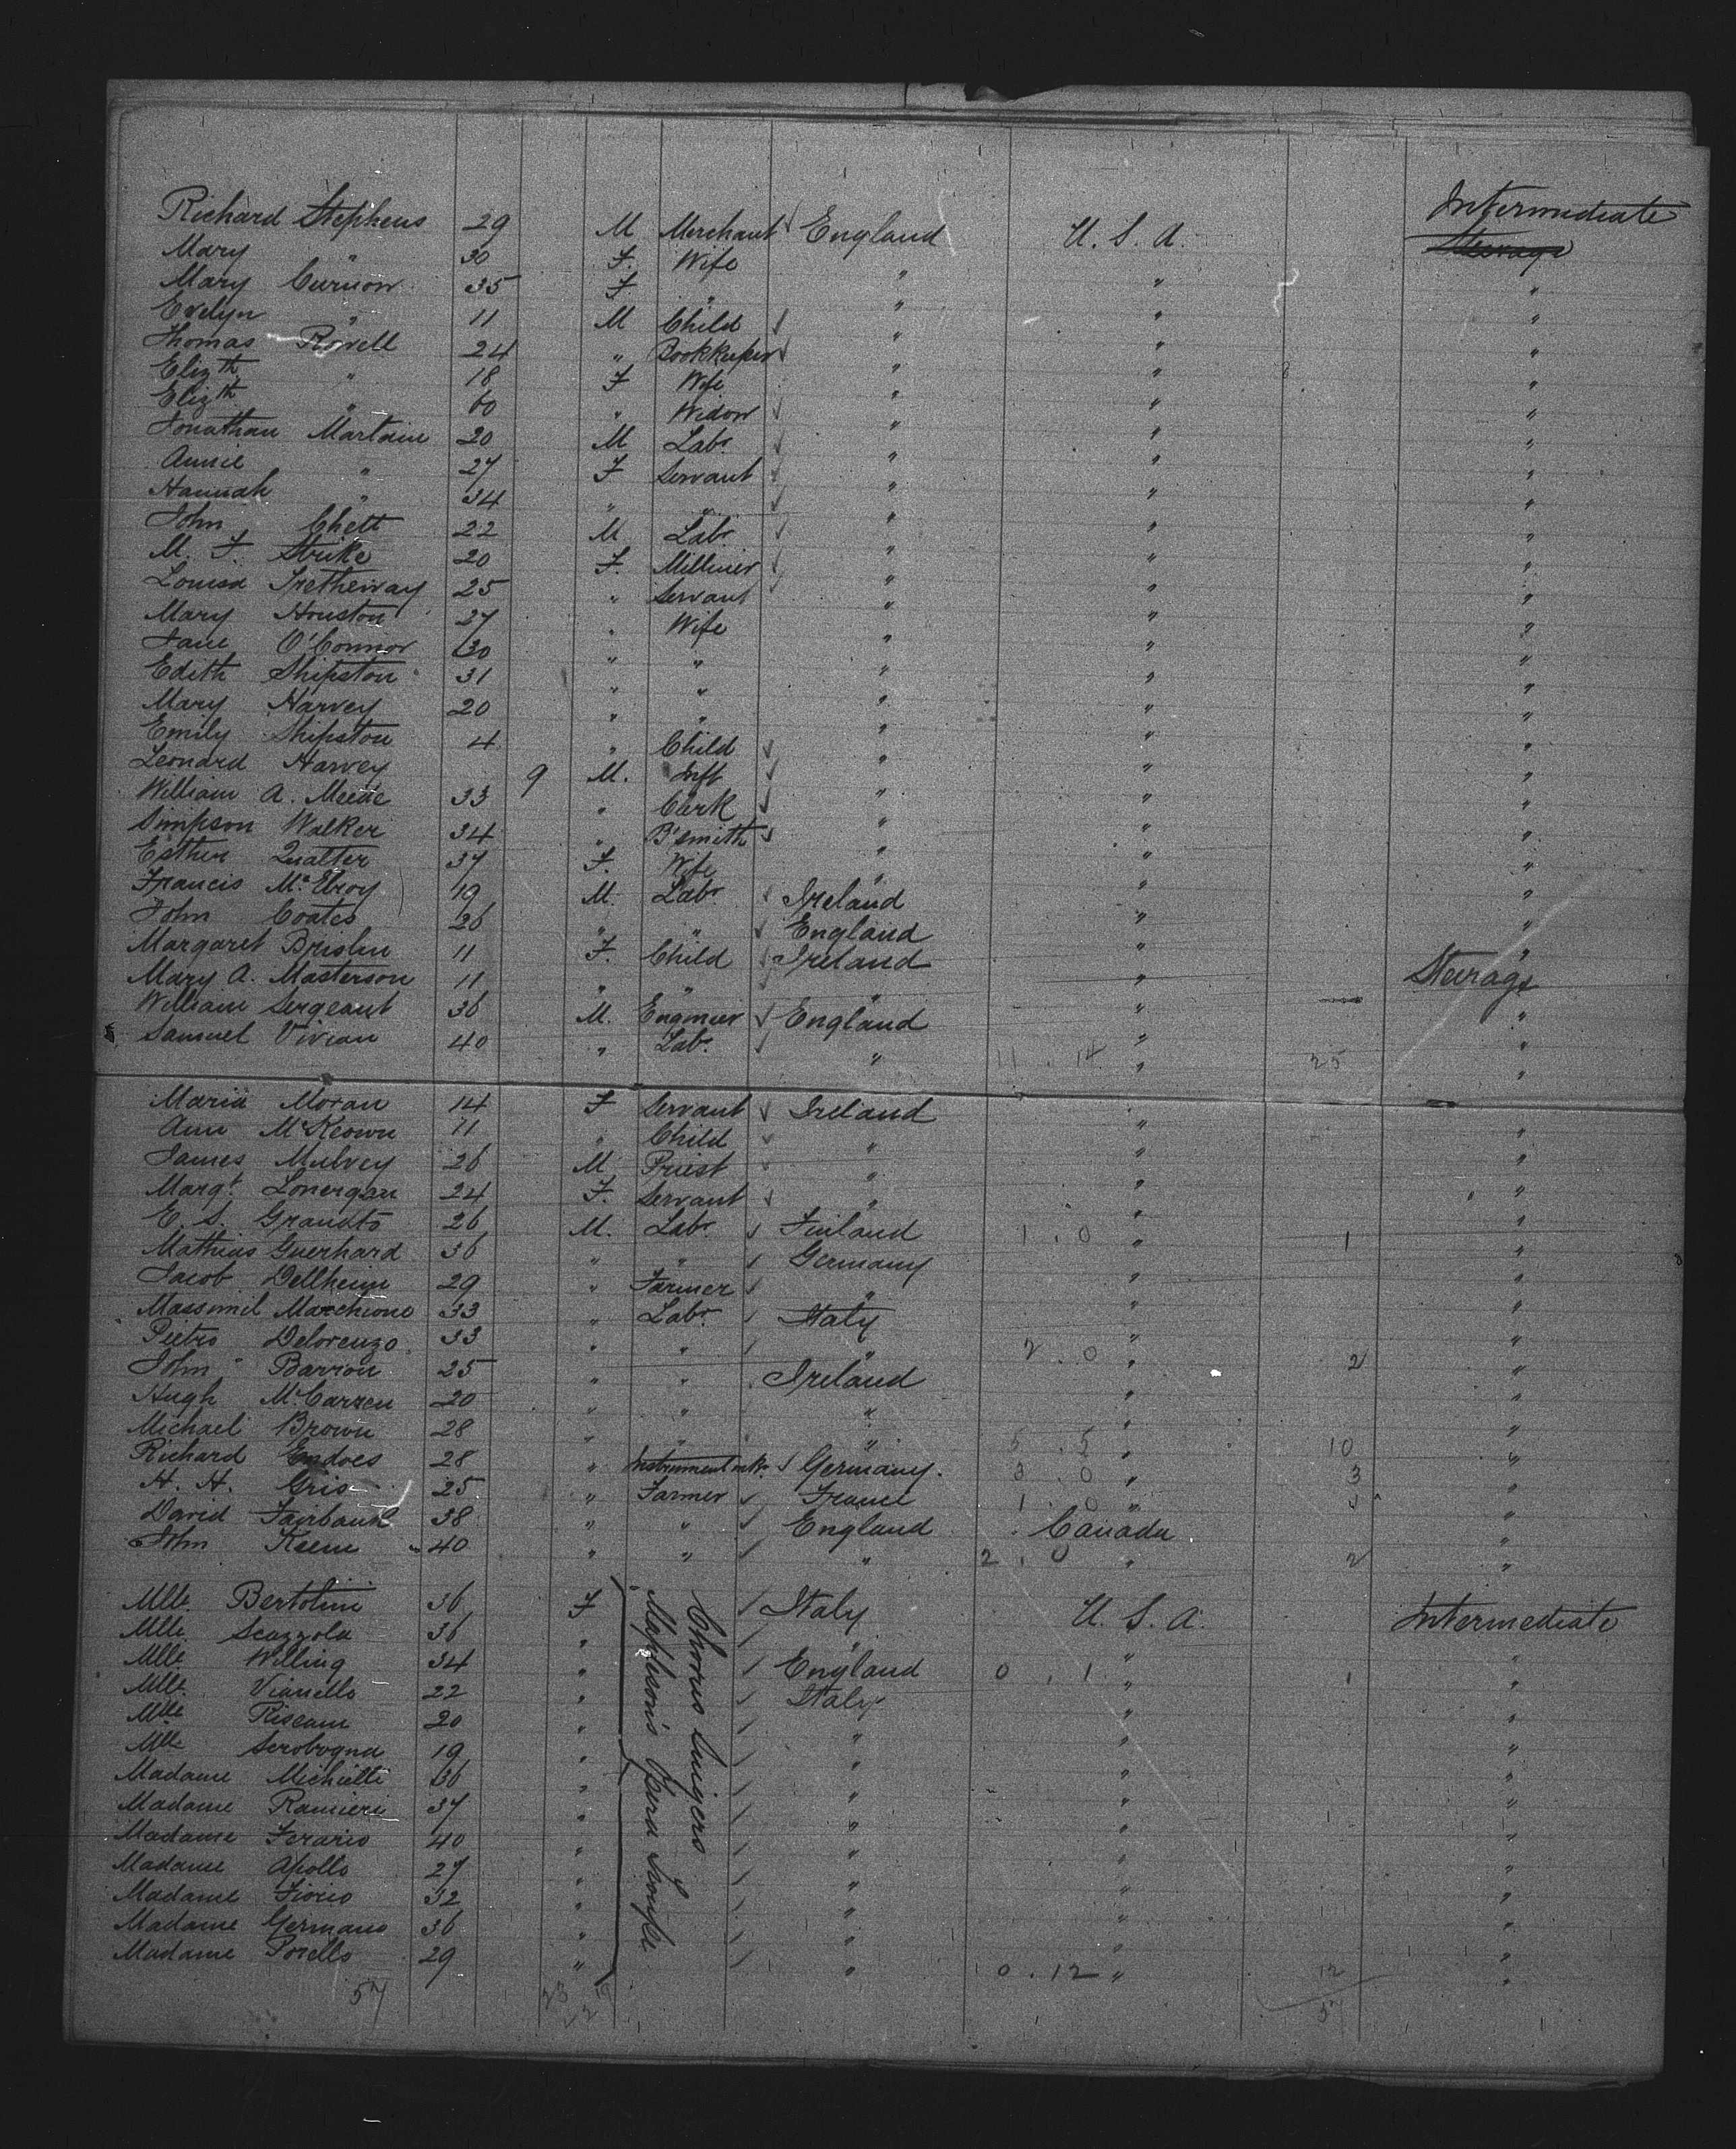 Richard Stephens 29 M Merchant England U. S. A. Intermediate
Mary " 30 F. Wife " " "
Mary Curnow 35 F " " " "
Evelyn " 11 M Child " " "
Thomas Rowell 24 " Bookkeeper " " "
Elizth " 18 F Wife " " "
Elizth " 60 " Widow " " "
Jonathan Martain 20 M Labr " " "
Annie " 27 F Servant " " "
Hannah " 34 " " " " "
John Chett 22 M Labr " " "
M. J. Strike 20 F. Milliner " " "
Louisa Tretheway 25 " Servant " " "
Mary Houston 27 " Wife " " "
Jane O'Connor 30 " " " " "
Edith Shipston 31 " " " " "
Mary Harvey 20 " " " " "
Emily Shipston 4 " Child " " "
Leonard Harvey 9 M. Inft " " "
William A. Meene 33 " Clerk " " "
Simpson Walker 34 " B'smith " " "
Esther Qualter 37 F. Wife " " "
Francis McElroy 19 M. Labr Ireland " "
John Coates 36 " " England " "
Margaret Brislin 11 F. Child Ireland " Steerage
Mary A. Masterson 11 " " " " "
William Sergeant 36 M. Engineer England " "
Samuel Vivian 40 " Labr. " 11 . 14 " 25 "
Maria Moran 14 F Servant Ireland " "
Ann McKeown 11 " Child " " "
James Mulvey 26 M Priest " " "
Margt. Lonergan 24 F. Servant " " "
E. S. Grandts 26 M. Labr Finland 1 . 0 " 1 "
Mathias Guerhard 36 " " Germany " "
Jacob Dellheim 29 " Farmer " " "
Massimil Marchione 33 " Labr. Italy " "
Pietro Delorenzo 33 " " " 2 . 0 " 2 "
John Barron 25 " " Ireland " "
Hugh McCarren 20 " " " " "
Michael Brown 28 " " " 5 . 5 " 10 "
Richard Endoes 28 " Instrument mkr. Germany. 3 . 0 " 3 "
H. H. Gris 25 " Farmer France 1 . 0 " "
David Fairbank 38 " " England Canada "
John Keene 40 " " " 2 . 0 " 2 "
Mlle. Bertolini 36 F Chorus Singers Mapleson's Opera Troupe Italy U. S. A. Intermediate
Mlle Scazzola 36 " " " "
Mlle Welling 34 " England 0 . 1 " 1 "
Mlle. Vianello 22 " Italy " "
Mlle Riscani 20 " " " "
Mlle Scrobogna 19 " " " "
Madame Michielli 36 " " " "
Madame Ranieri 37 " " " "
Madame Ferario 40 " " " "
Madame Apollo 27 " " " "
Madame Fiorio 32 " " " "
Madame Germano 36 " " " "
Madame Porello 29 " " 0 . 12 " 12 "
57 57